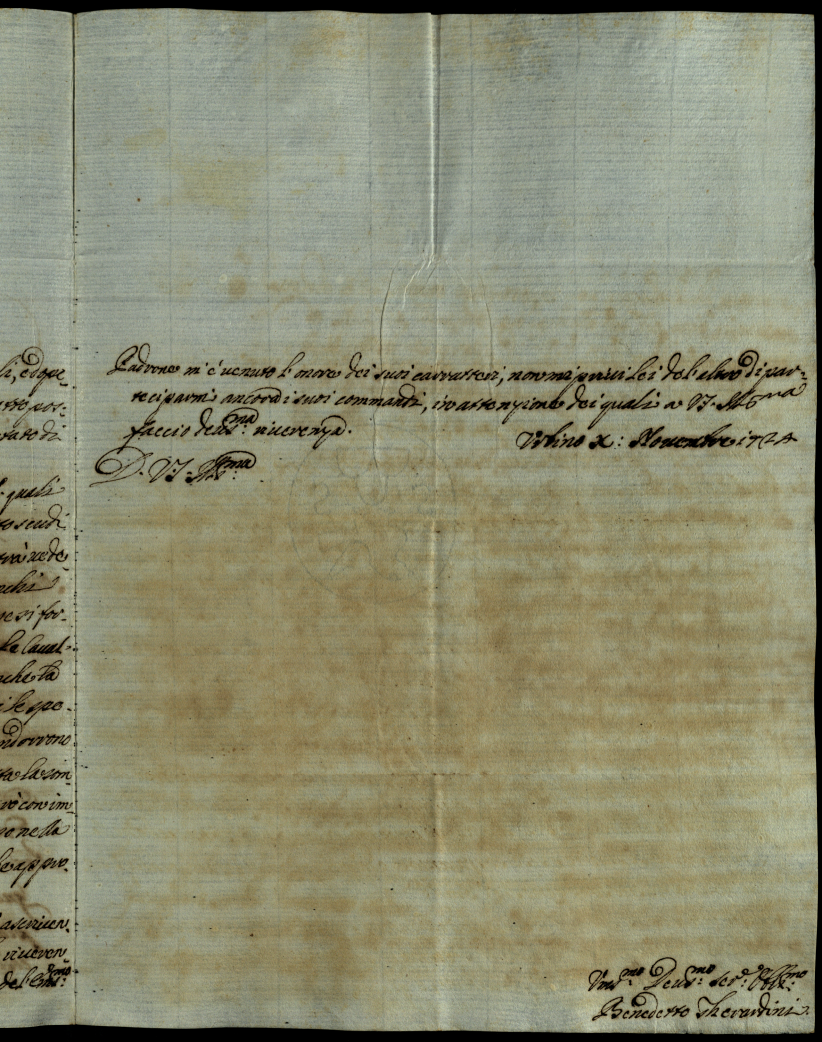 li, ed que
tto pos-
vato di
quali
to scudi
rà vede
nchi
ne si for-
la Caval-
nche la
i le spe-
ndorrono
ta la som
vò con im
no nella
le appro-
ascriven
riveren
del Em.mo
Padrone m'è venuto l'onore dei suoi carratteri, non mi privi Lei del'altro di par-
teciparmi ancora i suoi commandi, in attenzione dei quali a V.S. Ill.ma
faccio dev.ma riverenza.
Urbino X: Novembre 1724
D. V.S. Ill.ma
Um.mo Dev.mo ser.e Obl.mo
Benedetto Gherardini